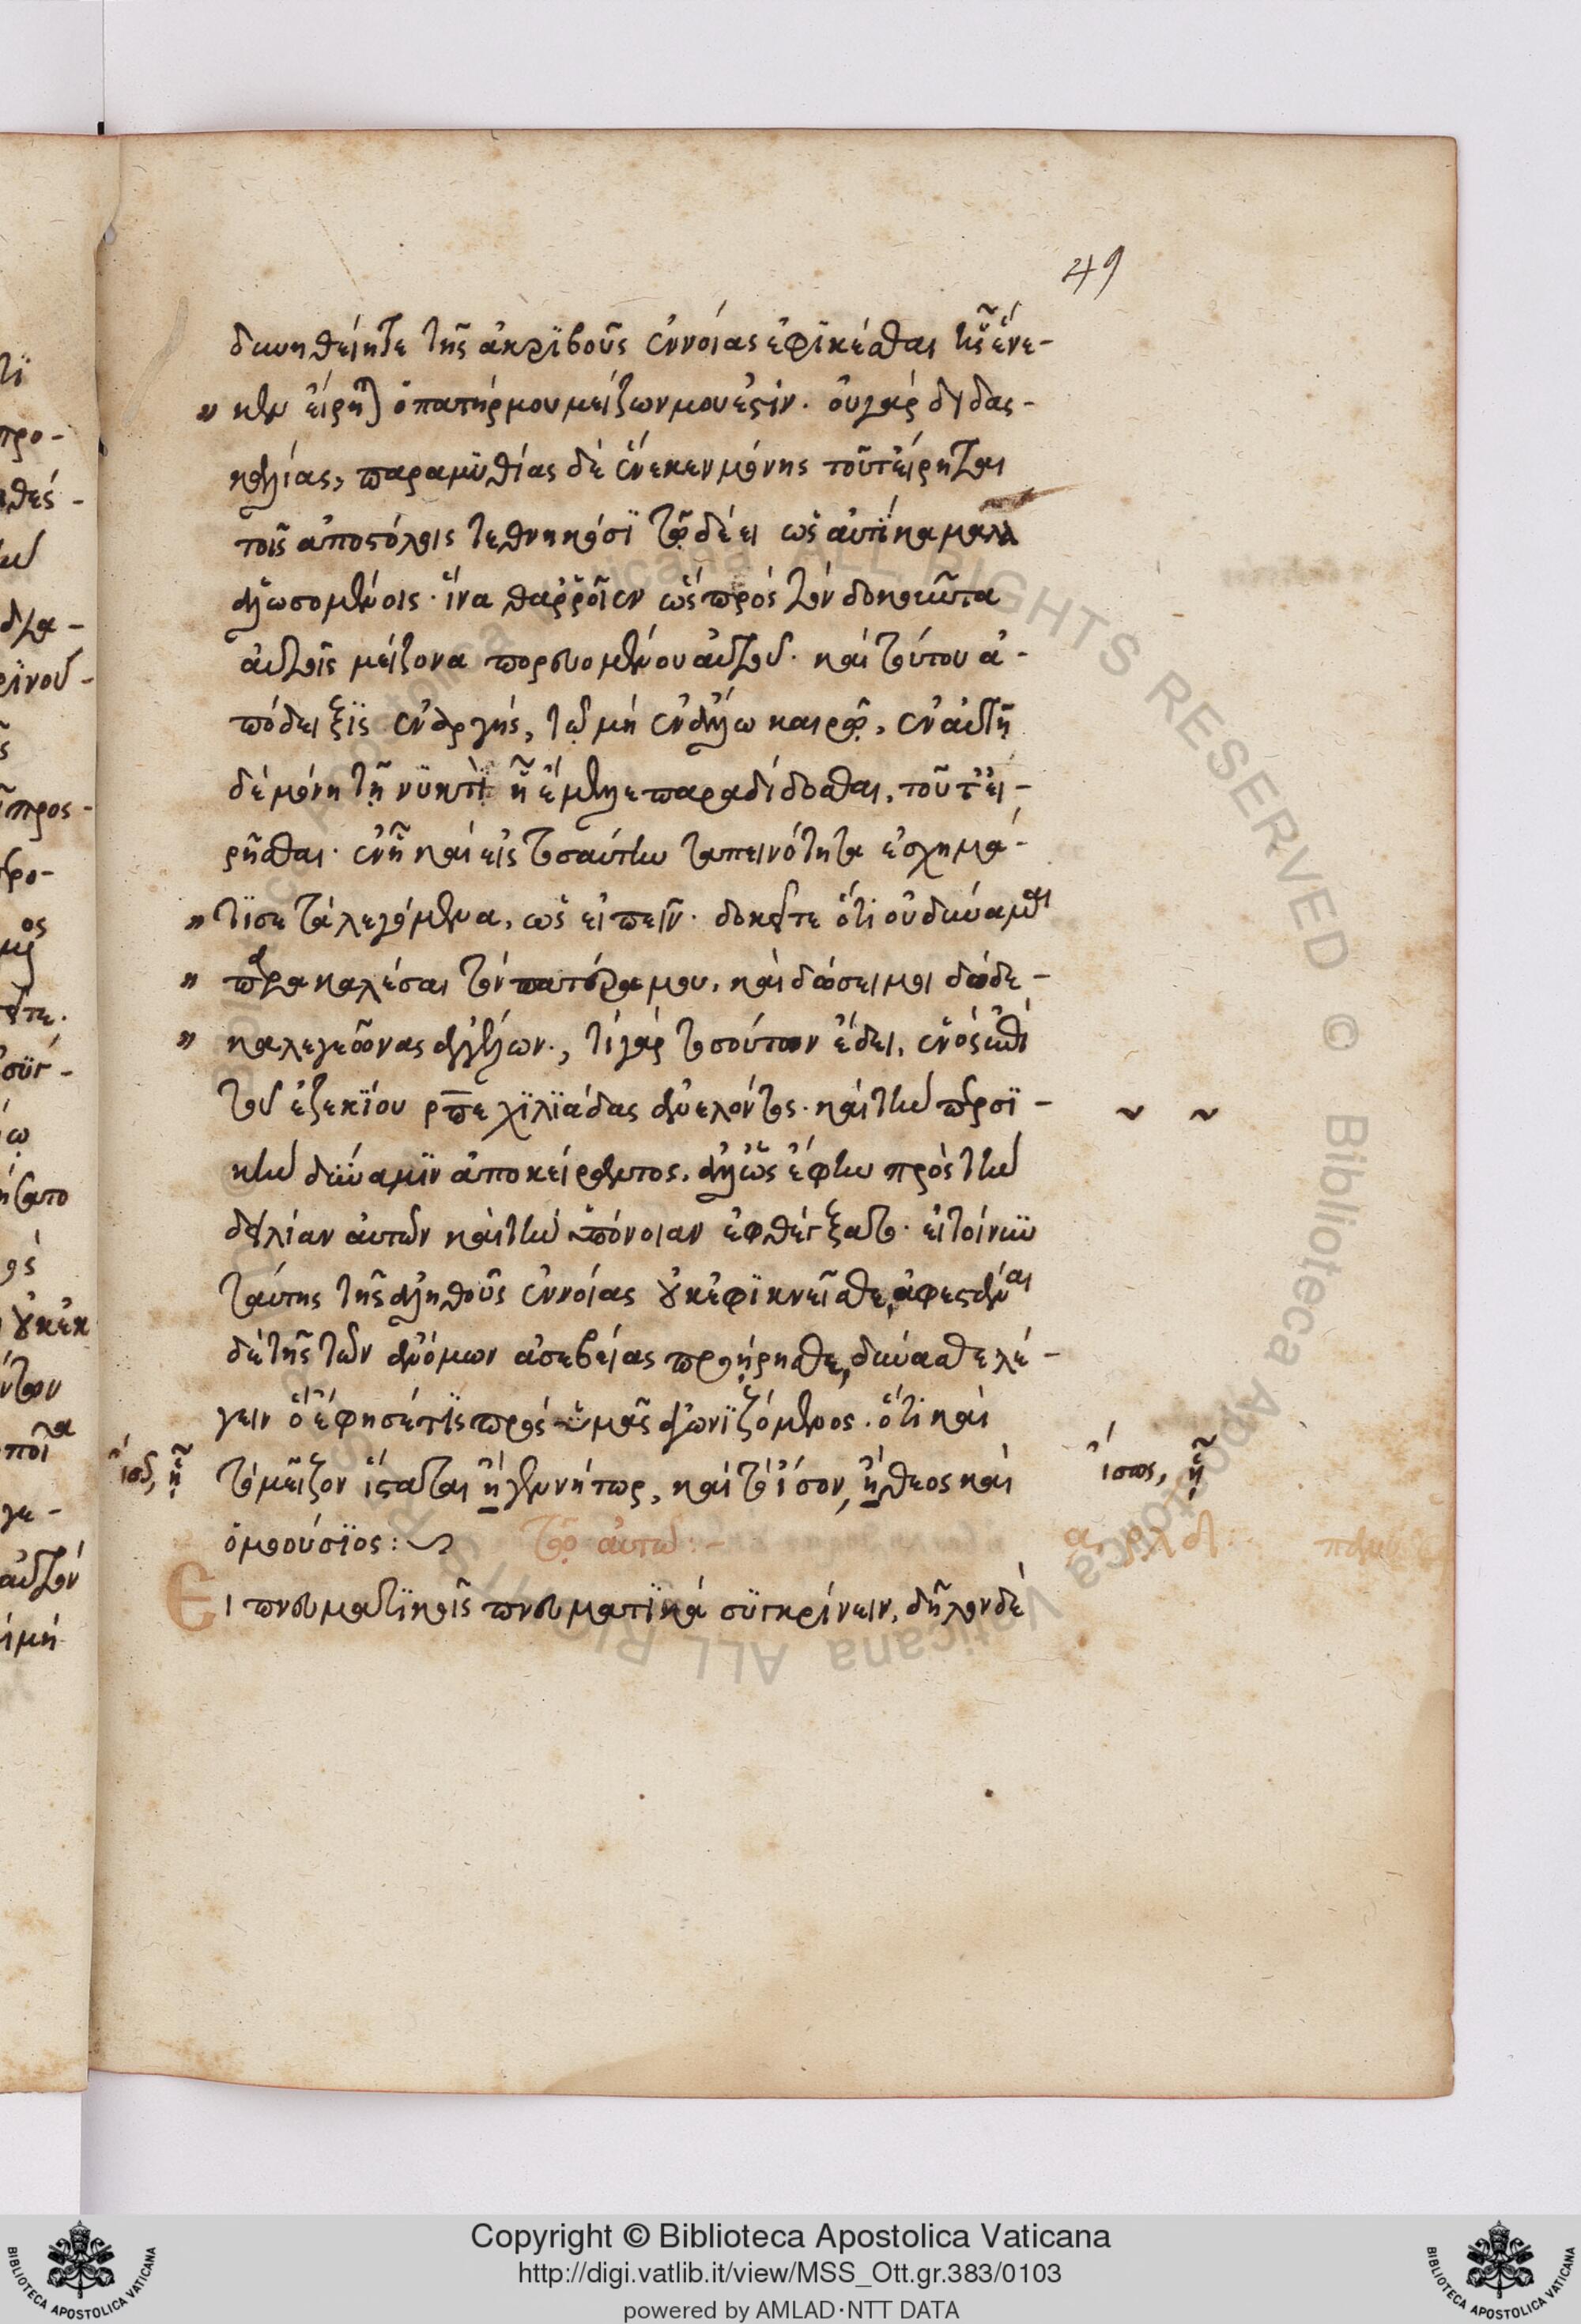 49
δυνηθείητε τῆς ἀκρϊβοῦς ἐννοίας ἐφϊκέσθαι ἧς ἕνε-
κεν εἴρηται ὁ πατήρ μου μείζων μου ἐστίν· οὐ γάρ διδας-
καλίας, παραμϋθίας δὲ ἕνεκεν μόνης τοῦτ' εἴρηται
τοῖς ἀποστόλοις τεθνηκόσϊ τῷ δέει ὡς αὐτίκα μάλα
ἁλωσομένοις· ἵνα θαῤῥοῖεν ὡς πρός τὸν δοκοῦντα
αὐτοῖς μείζονα πορευομένου αὐτοῦ· καὶ τούτου ἀ-
πόδειξϊς ἐναργής, τῷ μή ἐν ἄλλω καιρῷ, ἐν αὐτῇ
δέ μόνη τῇ νϋκτὶ ᾗ ἔμελλε παραδίδοσθαι, τοῦτ' εἰ-
ρῆσθαι· ἐν ᾗ καί εἰς τοσαύτην ταπεινότητα ἐσχημά-
τϊσε τά λεγόμενα, ὡς εἰπεῖν· δοκεῖτε ὅτι οὐ δύναμαι
παρακαλέσαι τόν πατέρα μου, καὶ δώσει μοι δώδε-
κα λεγεῶνας ἀγγέλων·, τί γάρ τοσούτων ἔδει, ἑνός ἐπὶ
τοῦ ἐζεκϊου ρπε χϊλϊάδας ἀνελόντος· καὶ τὴν περσϊ-
κὴν δύναμϊν ἀποκείραντος, ἀλλ' ὡς ἔφην πρὸς τὴν
δειλίαν αὐτῶν καὶ τὴν ὑπόνοιαν ἐφθέγξατο· εἰ τοίνυν
ταύτης τῆς ἀληθοῦς ἐννοίας οὐκ ἐφϊκνεῖσθε, ἀφεστάναι
δὲ τῆς τῶν ἀνόμων ἀσεβείας προῄρησθε, δύνασθε λέ-
γειν ὅ ἔφησέ τϊς πρός ὑμᾶς ἀγωνϊζόμενος· ὅτι καὶ
τό μεῖζον ἵσταται ἢ γεννήτωρ, καὶ τό ἴσον, ἢ θεος καὶ
ἴσως, ᾗ
ὁμοούσϊος:
τῷ αὐτῷ:-
Ει πνευματϊκοῖς πνευματϊκά συγκρίνειν, δῆλον δὲ
Copyright © Biblioteca Apostolica Vaticana
http://digi.vatlib.it/view/MSS_Ott.gr.383/0103
powered by AMLAD·NTT DATA
BIBLIOTECA APOSTOLICA VATICANA
BIBLIOTECA APOSTOLICA VATICANA